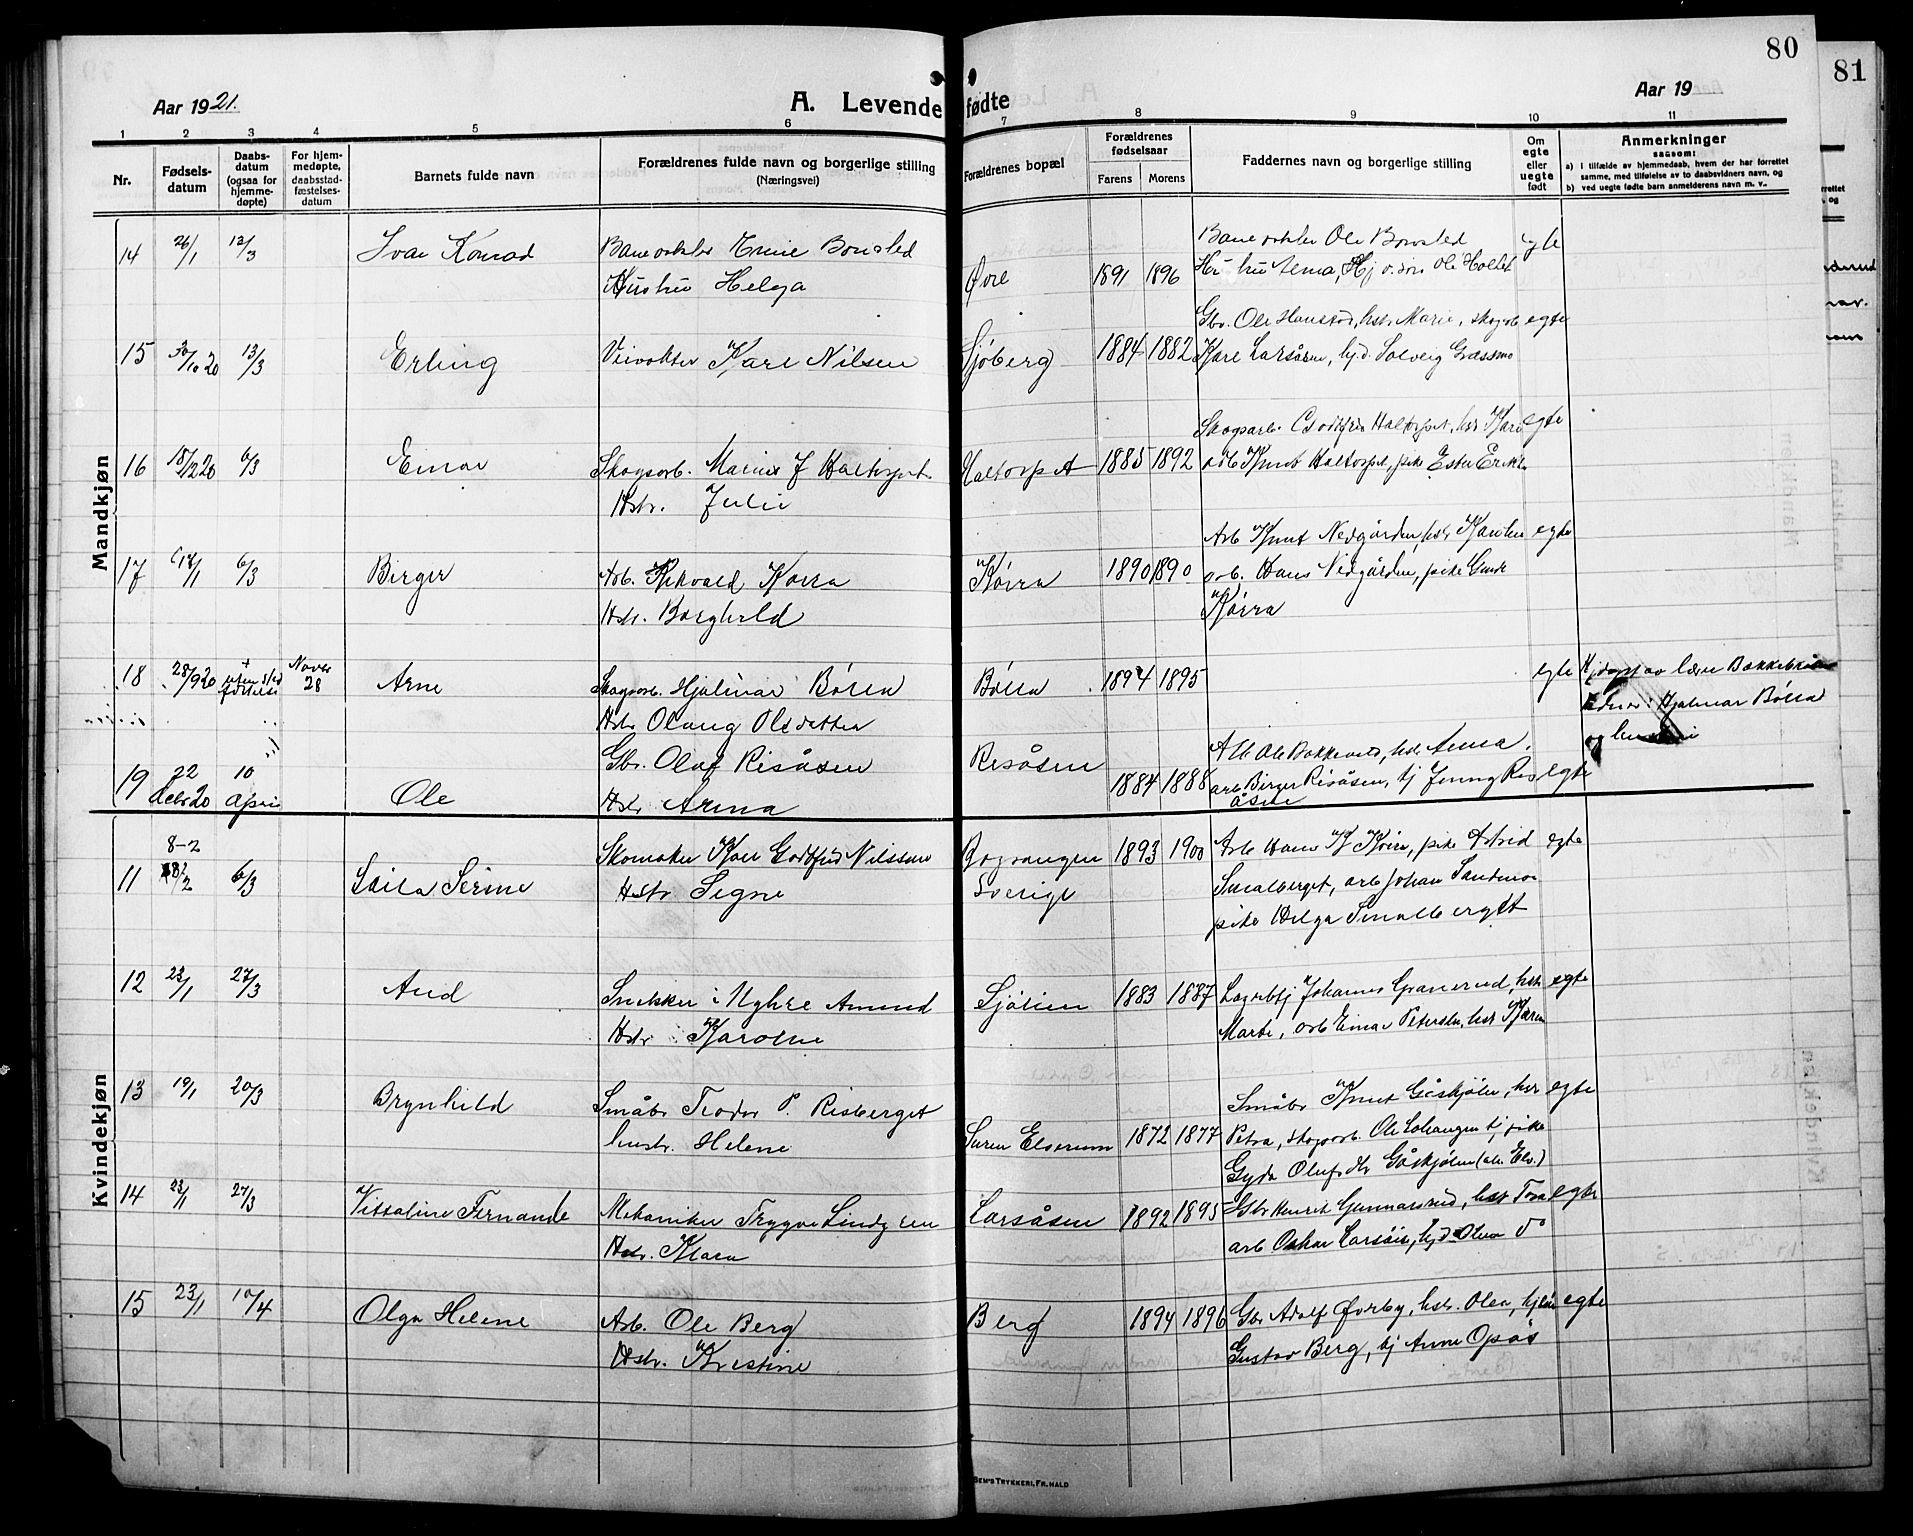 80
81
Aar 1921.
A. Levende fødte
Aar 19
1 2 3 4 5 6 7 8 9 10 11
Nr.
Fødsels-
datum
Daabs-
datum
(ogsaa for
hjemme-
døpte)
For hjem-
medøpte,
daabsstad-
fæstelses-
datum
Barnets fulde navn
Forældrenes fulde navn og borgerlige stilling
(Næringsvei)
Forældrenes bopæl
Forældrenes
fødselsaar
Farens Morens
Faddernes navn og borgerlige stilling
Om
egte
eller
uegte
født
Anmerkninger
saasom:
a) i tilfælde av hjemmedaab, hvem der har forrettet
samme, med tilføielse av to daabsvidners navn, og
b) ved uegte fødte barn anmelderens navn m. v.
Mandkjøn
14 26/1 13/3 Ivar Konrad
Banevokter Bonsted
Hustru Helga
Øvre 1891 1896
Banevokter Ole Bonsted
egte
15 30/10 20 13/3 Erling
Veivokter Karl Nilsen
Sjøberg 1884 1882
Gbr. Ole Hanstad, hstr Marie, skogsb
Kare Larsåsen, hjd. Solveig Græsmo
egte
16 18/12 20 6/3 Einar
Skogsarb. Marius J Haltorpet
Hstr. Julie
Haltorpet 1885 1892
Skogsarb. Godtfred Haltorpet, hstr Kari
arb Knut Haltorpet, pike Ester
egte
17 14/1 6/3 Birger
Arb. Rikvald Koira
Hstr. Borghild
Koira 1890 1890
Arb Knut Nedgården, hstr
arb. Hans Nedgården, pike
Koira
egte
18 28/9 20 Novbr
28
Arne
Skogsarb. Hjalmar Bölla
Hstr Olaug Olsdatter
Bölla 1894 1895
egte
Hjdøpt av lærer
Hjalmar Bölla
og hustru
19 22
Decbr 20 10
April
Ole
Gbr. Olaf Risåsen
Hstr Anna
Risåsen 1884 1888
hstr Anna,
arb Birger Risåsen, tj Jenny Ris
åsen
egte
Kvindekjøn
8-2
11 6/3 Laila Serine
Skomaker Karl Godtfred Nilsson
Hstr Signe
Bograngen
Sverige
1893 1900
Arb Hans K Koira, pike Astrid
Smalberget, arb Johan Sandmo
pike Helga Smalberget
egte
12 23/1 27/3 Aud
Snekker i Myhre Amund
Hstr Karoline
Sjølien 1883 1887
Johannes Granerud, hstr
Marte, arb Einar Petersen, hstr Karen
egte
13 19/1 20/3 Brynhild
Småbr Teodor P. Risberget
hustr. Helene
Søren Elverum 1872 1877
Småbr Knut Gåskjølen, hstr
Petra, skogsarb. Ole Lohangen tj pike
Gyda Olufsdtr Gåskjølen (alle Elv.)
egte
14 23/1 27/3 Vittaline Fernande
Mekaniker Trygve Lindgren
Hstr. Klara
Larsåsen 1892 1895
Gbr Henrik Gunnarsrud, hstr Tora
arb Oskar Larsåsen, hjd Olea do
egte
15 23/1 10/4 Olga Helene
Arb. Ole Berg
Hstr. Kristine
Berg 1894 1896
Gbr Adolf Øverby, hstr. Olea,
Gustav Berg, tj Anne Opsås
egte
TRYKKERI, FR. HALD